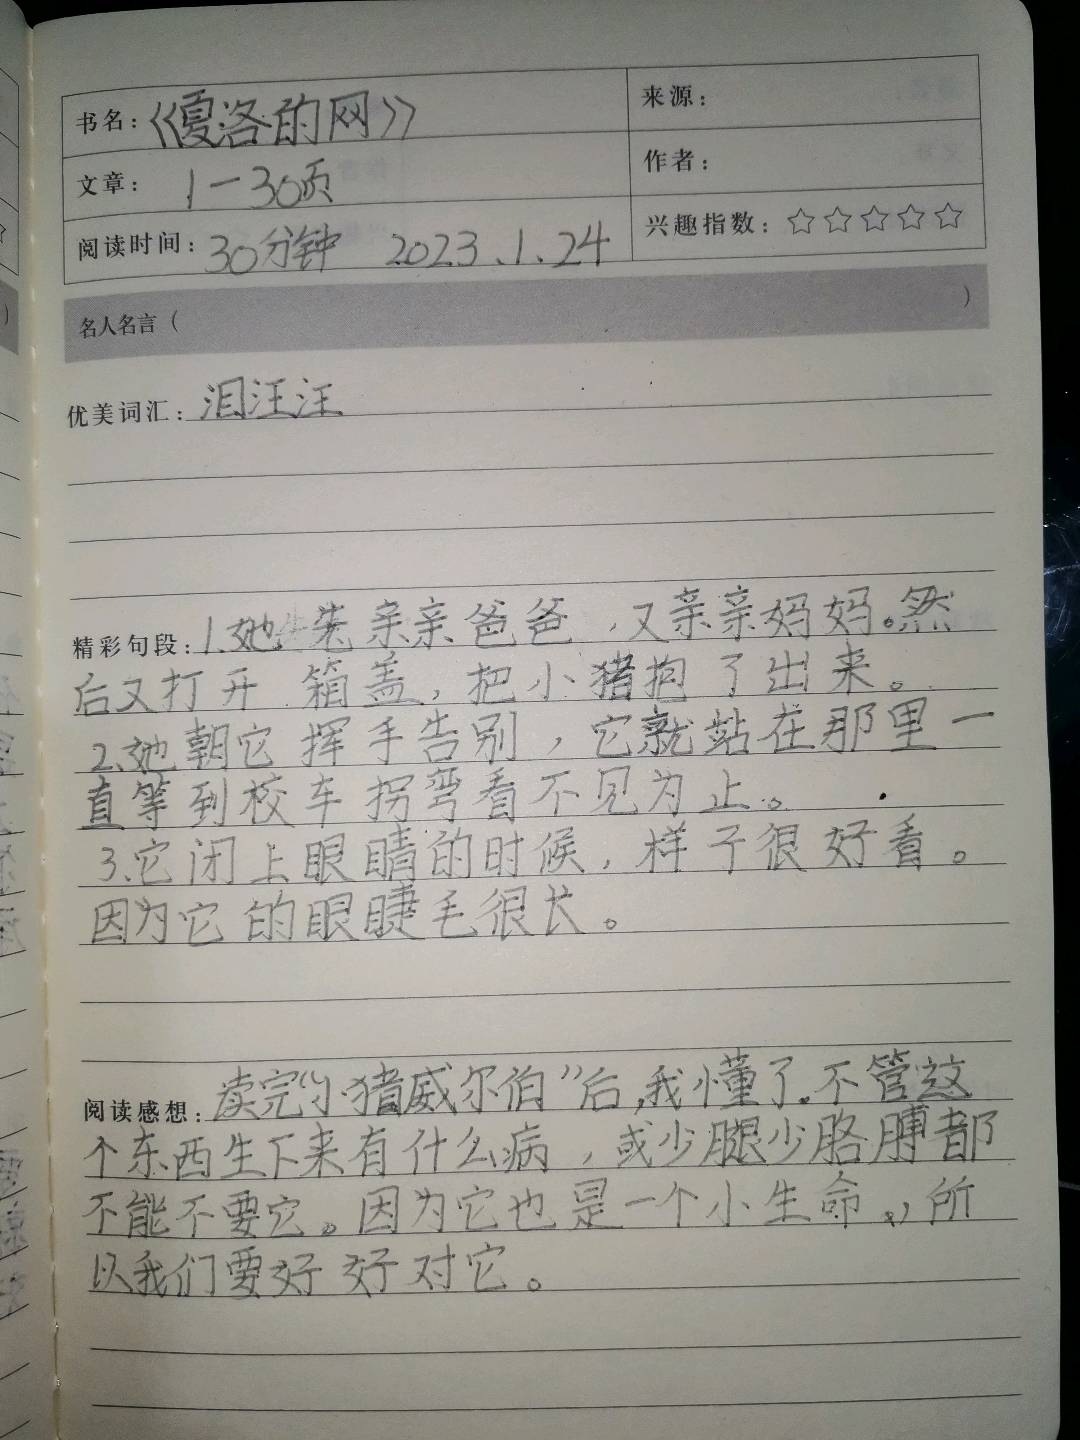 书名：《夏洛的网》
来源：
文章： 1一30页
作者：
阅读时间：30分钟 2023.1.24
兴趣指数：☆☆☆☆☆
名人名言（ ）
优美词汇：泪汪汪
精彩句段：1.她先亲亲爸爸，又亲亲妈妈。然
后又打开箱盖，把小猪抱了出来。
2.她朝它挥手告别，它就站在那里一
直等到校车拐弯看不见为止。
3.它闭上眼睛的时候，样子很好看。
因为它的眼睫毛很长。
阅读感想：读完“小猪威尔伯”后，我懂了。不管这
个东西生下来有什么病，或少腿少胳膊都
不能不要它。因为它也是一个小生命，所
以我们要好好对它。